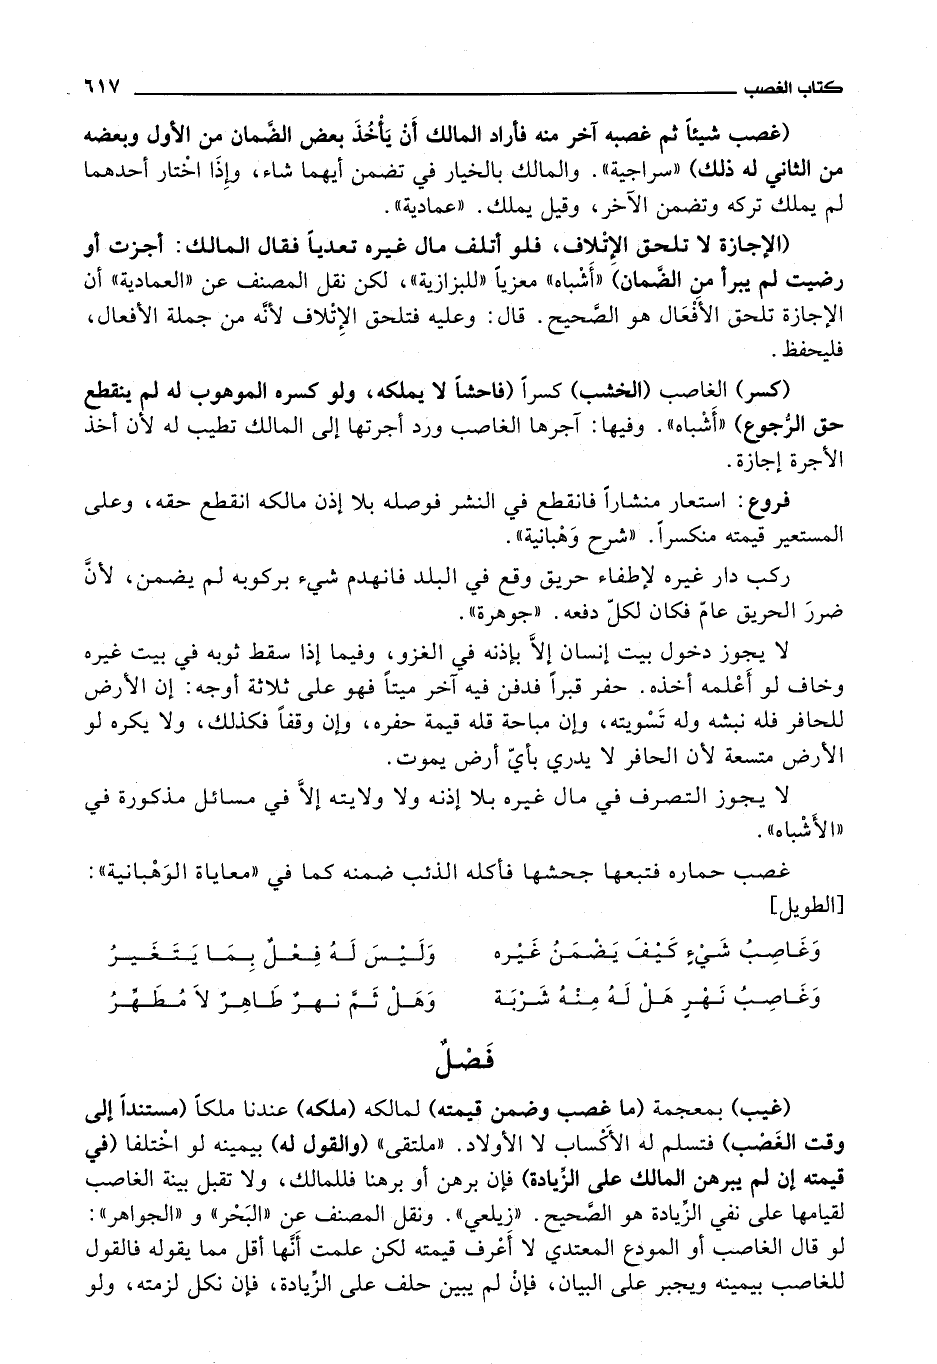 كتاب الغصب ٦١٧
(غصب شيئاً ثم غصبه آخر منه فأراد المالك أَنْ يَأْخُذَ بعض الضَّمان من الأول وبعضه
من الثاني له ذلك) «سراجية». والمالك بالخيار في تضمن أيهما شاء، وإِذَا اخْتار أحدهما
لم يملك تركه وتضمن الآخر، وقيل يملك. «عمادية».
(الإجازة لا تلحق الإِتْلاف، فلو أتلف مال غيره تعدياً فقال المالك: أجزت أو
رضيت لم يبرأ من الضَّمان) «أَشْباه» معزياً «للبزازية»، لكن نقل المصنف عن «العمادية» أن
الإجازة تلحق الأَفْعَال هو الصَّحيح. قال: وعليه فتلحق الإِتْلاف لأنَّه من جملة الأفعال،
فليحفظ.
(كسر) الغاصب (الخشب) كسراً (فاحشاً لا يملكه، ولو كسره الموهوب له لم ينقطع
حق الرُّجوع) «أَشْباه». وفيها: آجرها الغاصب ورد أجرتها إلى المالك تطيب له لأن أخذ
الأجرة إجازة.
فروع: استعار منشاراً فانقطع في النشر فوصله بلا إذن مالكه انقطع حقه، وعلى
المستعير قيمته منكسراً. «شرح وَهْبانية».
ركب دار غيره لإطفاء حريق وقع في البلد فانهدم شيء بركوبه لم يضمن، لأنَّ
ضررَ الحريق عامّ فكان لكلّ دفعه. «جوهرة».
لا يجوز دخول بيت إنسان إلاَّ بإذنه في الغزو، وفيما إذا سقط ثوبه في بيت غيره
وخاف لو أَعْلمه أخذه. حفر قبراً فدفن فيه آخر ميتاً فهو على ثلاثة أوجه: إن الأرض
للحافر فله نبشه وله تَسْويته، وإن مباحة فله قيمة حفره، وإن وقفاً فكذلك، ولا يكره لو
الأرض متسعة لأن الحافر لا يدري بأيّ أرض يموت.
لا يجوز التصرف في مال غيره بلا إذنه ولا ولايته إلاَّ في مسائل مذكورة في
«الأَشْباه».
غصب حماره فتبعها جحشها فأكله الذئب ضمنه كما في «معاياة الوَهْبانية»:
[الطويل]
وَغَاصِبُ شَيْءٍ كَيْفَ يَضْمَنُ غَيْره وَلَيْسَ لَهُ فِعْلٌ بِمَا يَتَغَيرُ
وَغَاصِبُ نَهْرٍ هَلْ لَهُ مِنْهُ شَرْبَة وَهَلْ ثَمَّ نهرٌ طَاهِرٌ لاَ مُطَهِّرُ
فَصْلٌ
(غيب) بمعجمة (ما غصب وضمن قيمته) لمالكه (ملكه) عندنا ملكاً (مستنداً إلى
وقت الغَصْب) فتسلم له الأَكْساب لا الأولاد. «ملتقى» (والقول له) بيمينه لو اخْتلفا (في
قيمته إن لم يبرهن المالك على الزِّيادة) فإن برهن أو برهنا فللمالك، ولا تقبل بينة الغاصب
لقيامها على نفي الزِّيادة هو الصَّحيح. «زيلعي». ونقل المصنف عن «البَحْر» و «الجواهر»:
لو قال الغاصب أو المودع المعتدي لا أَعْرف قيمته لكن علمت أنَّها أقل مما يقوله فالقول
للغاصب بيمينه ويجبر على البيان، فإنْ لم يبين حلف على الزِّيادة، فإن نكل لزمته، ولو